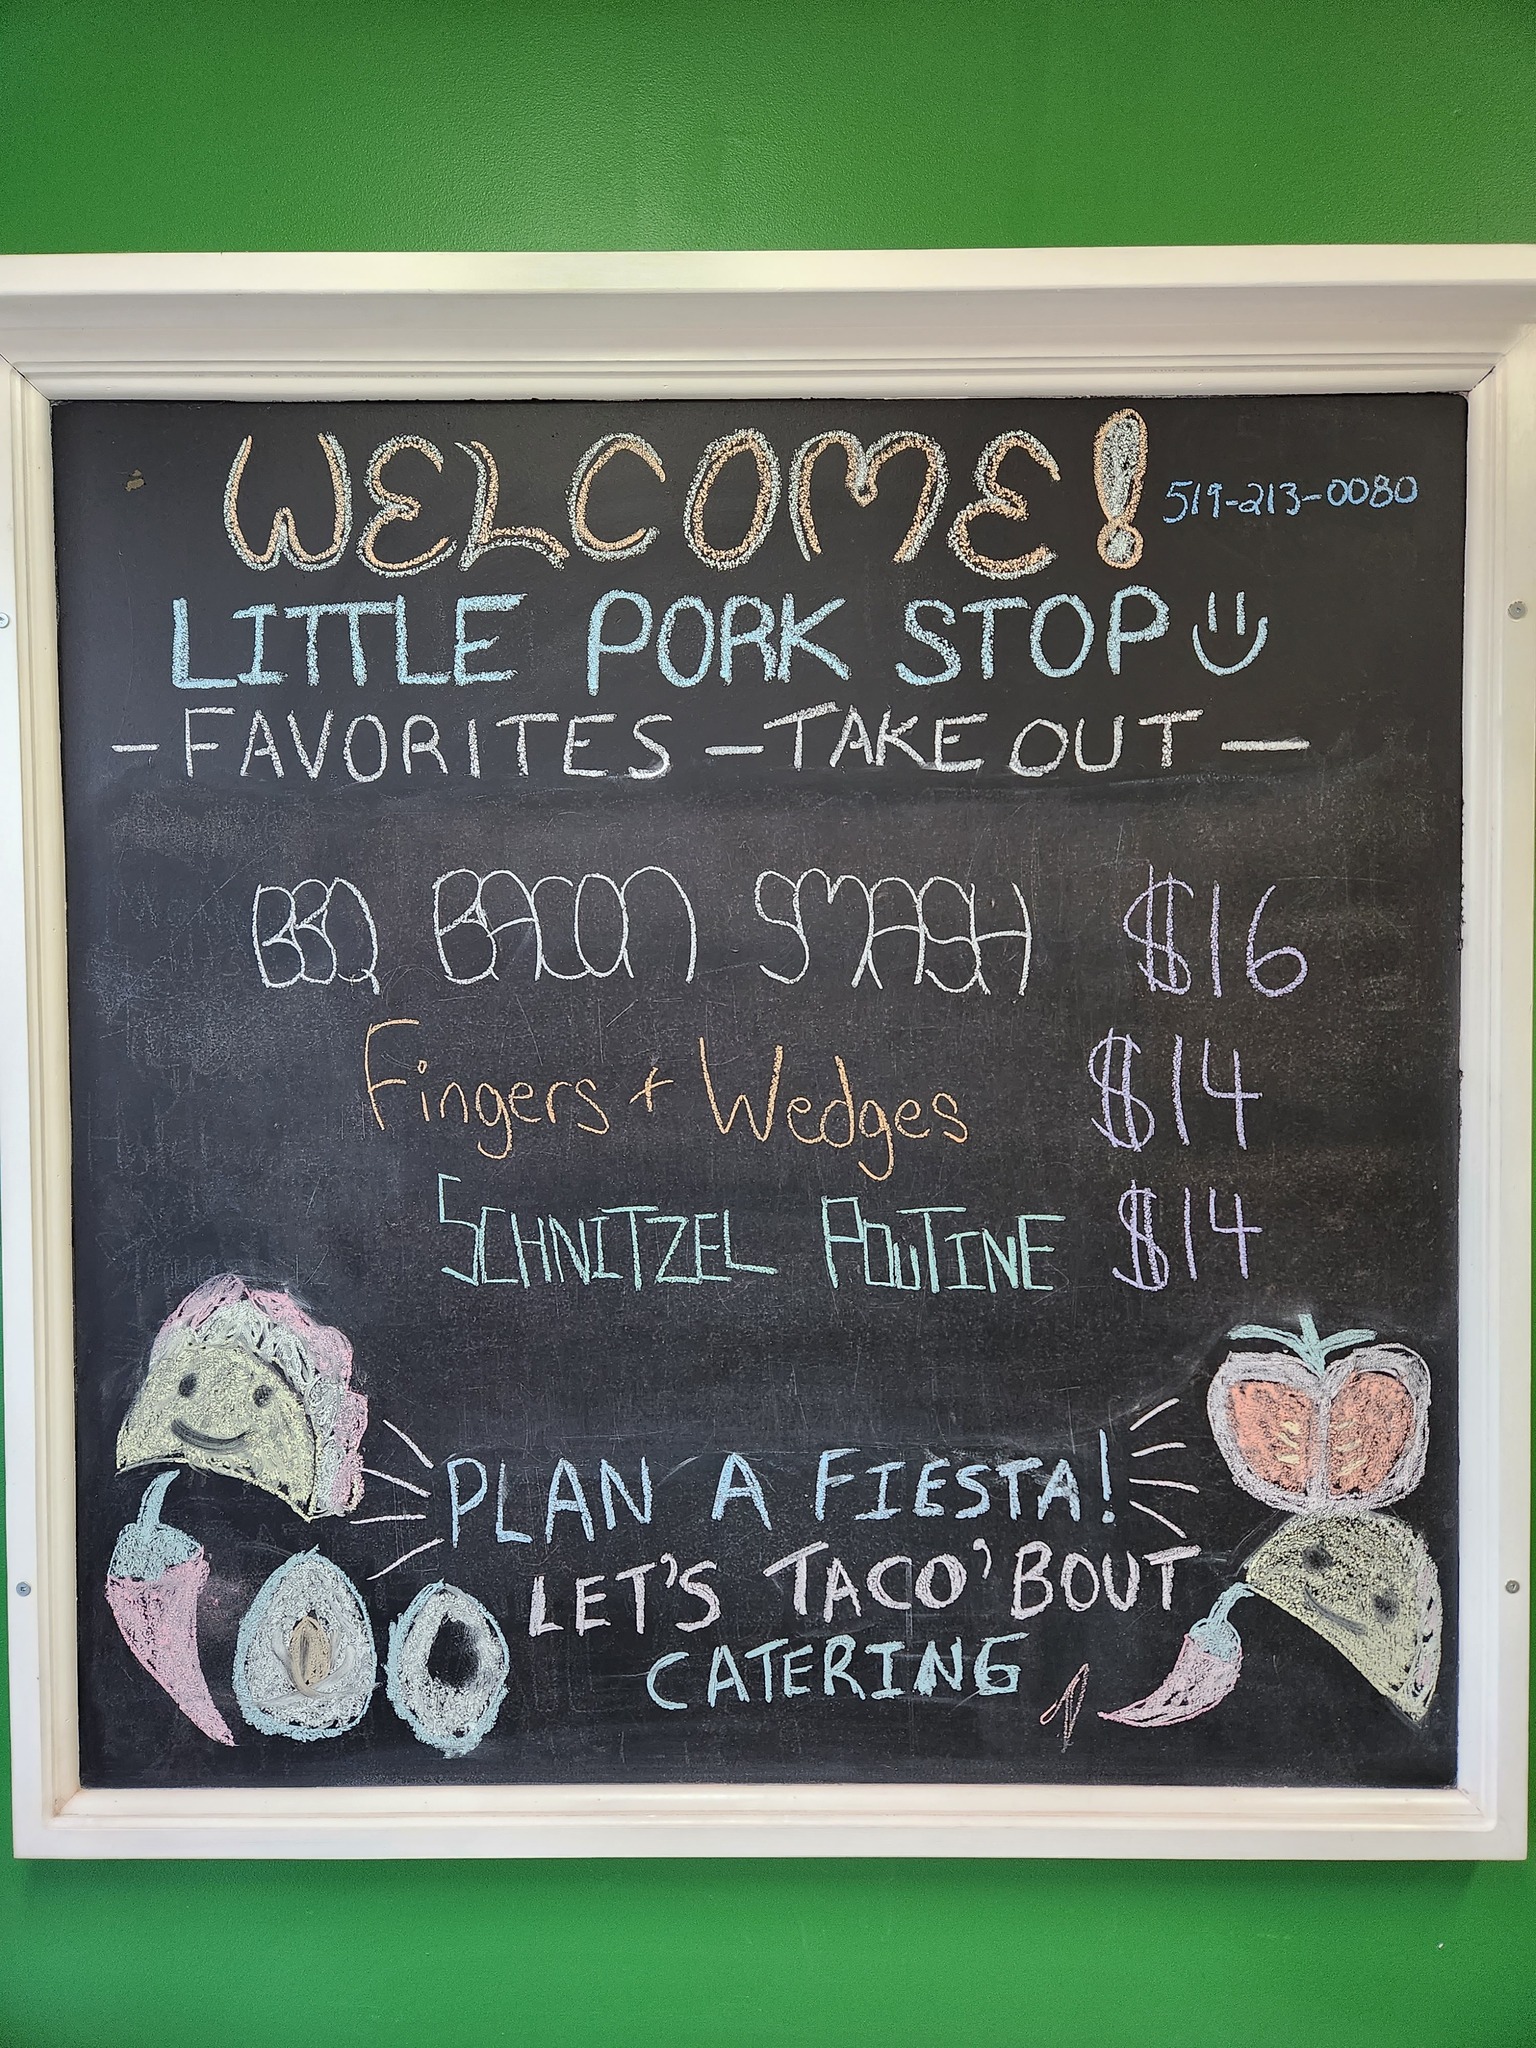 WELCOME! 519-213-0080
LITTLE PORK STOP
-FAVORITES -TAKE OUT-
BBQ BACON SMASH $16
Fingers + Wedges $14
SCHNITZEL POUTINE $14
PLAN A FIESTA!
LET'S TACO 'BOUT
CATERING